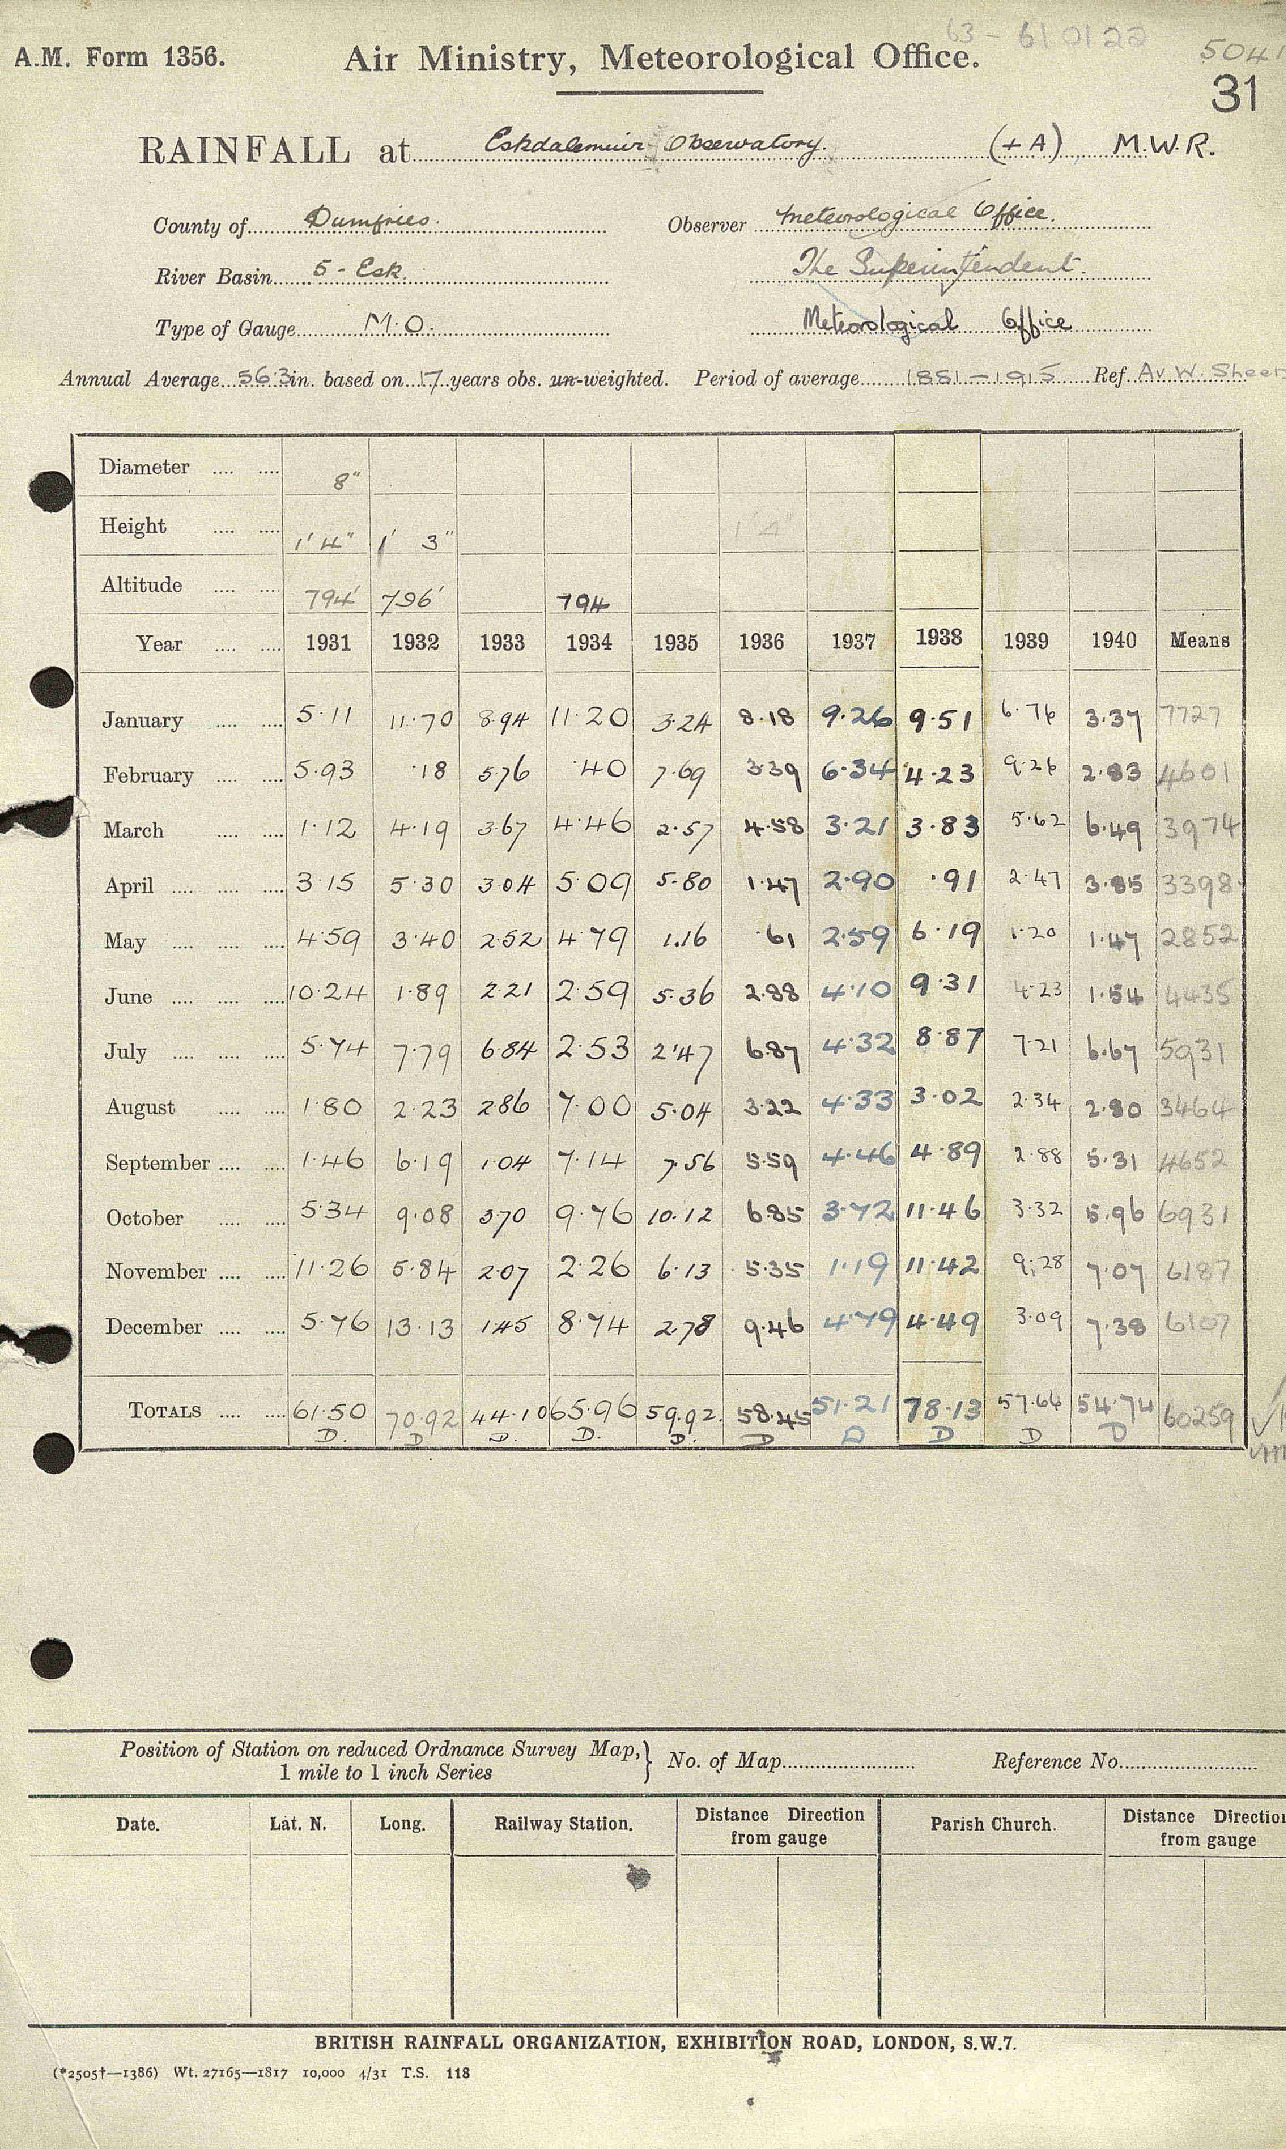 63 - 610122
5041
A.M. Form 1356. Air Ministry, Meteorological Office.
31
RAINFALL at Eskdalemuir Observatory. (+A) M.W.R.
County of Dumfries. Observer Meteorological Office.
River Basin 5 - Esk. The Superintendent.
Type of Gauge M.O. Meteorological Office
Annual Average 56.3 in. based on 17 years obs. un-weighted. Period of average 1881-1915 Ref. Av W. Sheet
Diameter 8"
Height 1' 4" 1' 3" 1' 4"
Altitude 794' 796' 794
Year 1931 1932 1933 1934 1935 1936 1937 1938 1939 1940 Means
January 5.11 11.70 8.94 11.20 3.24 8.18 9.26 9.51 6.76 3.37 7727
February 5.93 .18 5.76 .40 7.69 3.39 6.34 4.23 9.26 2.83 4601
March 1.12 4.19 3.67 4.46 2.57 4.58 3.21 3.83 5.62 6.49 3974
April 3.15 5.30 3.04 5.09 5.80 1.47 2.90 .91 2.47 3.85 3398
May 4.59 3.40 2.52 4.79 1.16 .61 2.59 6.19 1.20 1.47 2852
June 10.24 1.89 2.21 2.59 5.36 2.88 4.10 9.31 4.23 1.54 4435
July 5.74 7.79 6.84 2.53 2.47 6.87 4.32 8.87 7.21 6.67 5931
August 1.80 2.23 2.86 7.00 5.04 3.22 4.33 3.02 2.34 2.80 3464
September 1.46 6.19 1.04 7.14 7.56 5.59 4.46 4.89 2.88 5.31 4652
October 5.34 9.08 3.70 9.76 10.12 6.85 3.72 11.46 3.32 5.96 6931
November 11.26 5.84 2.07 2.26 6.13 5.35 1.19 11.42 9.28 7.07 6187
December 5.76 13.13 1.45 8.74 2.78 9.46 4.79 4.49 3.09 7.38 6107
TOTALS 61.50 70.92 44.10 65.96 59.92 58.45 51.21 78.13 57.66 54.74 60259
D. D D. D. D. D D D D D
Position of Station on reduced Ordnance Survey Map, } No. of Map Reference No.
1 mile to 1 inch Series
Date. Lat. N. Long. Railway Station. Distance Direction Parish Church. Distance Directio
from gauge from gauge
BRITISH RAINFALL ORGANIZATION, EXHIBITION ROAD, LONDON, S.W.7.
(*2505†—1386) Wt. 27165—1817 10,000 4/31 T.S. 118